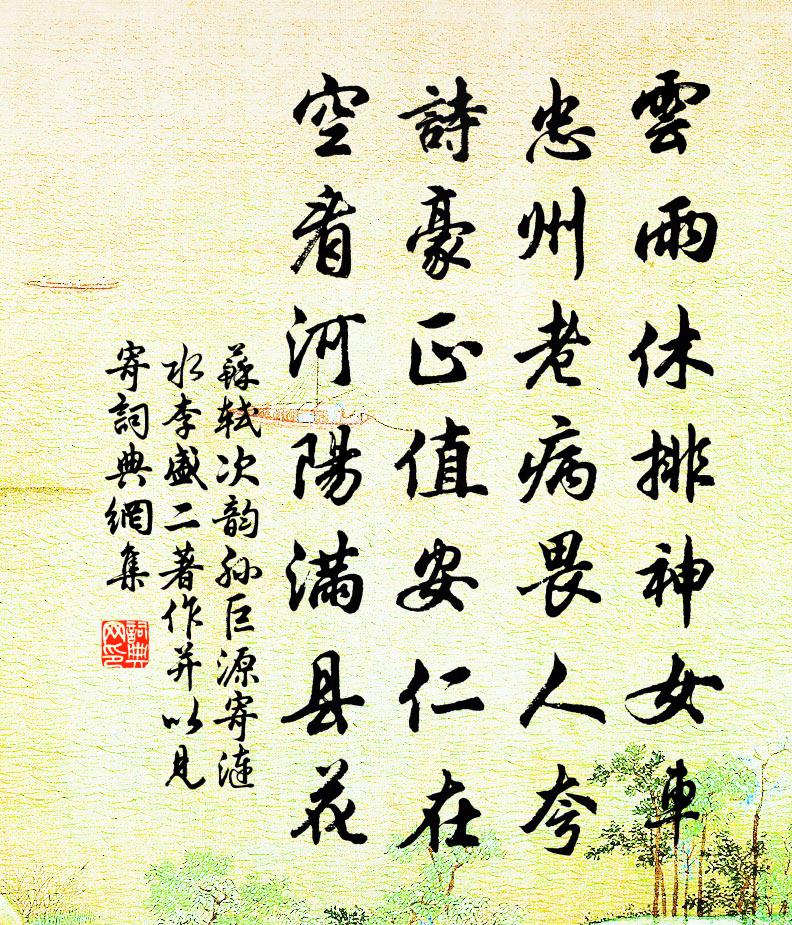 雲雨休排神女車
忠州老病畏人夸
詩豪正值安仁在
空看河陽满县花
蘇轼次韵孙巨源寄涟
水李盛二著作并以見
寄詞典網集
詞典
网印